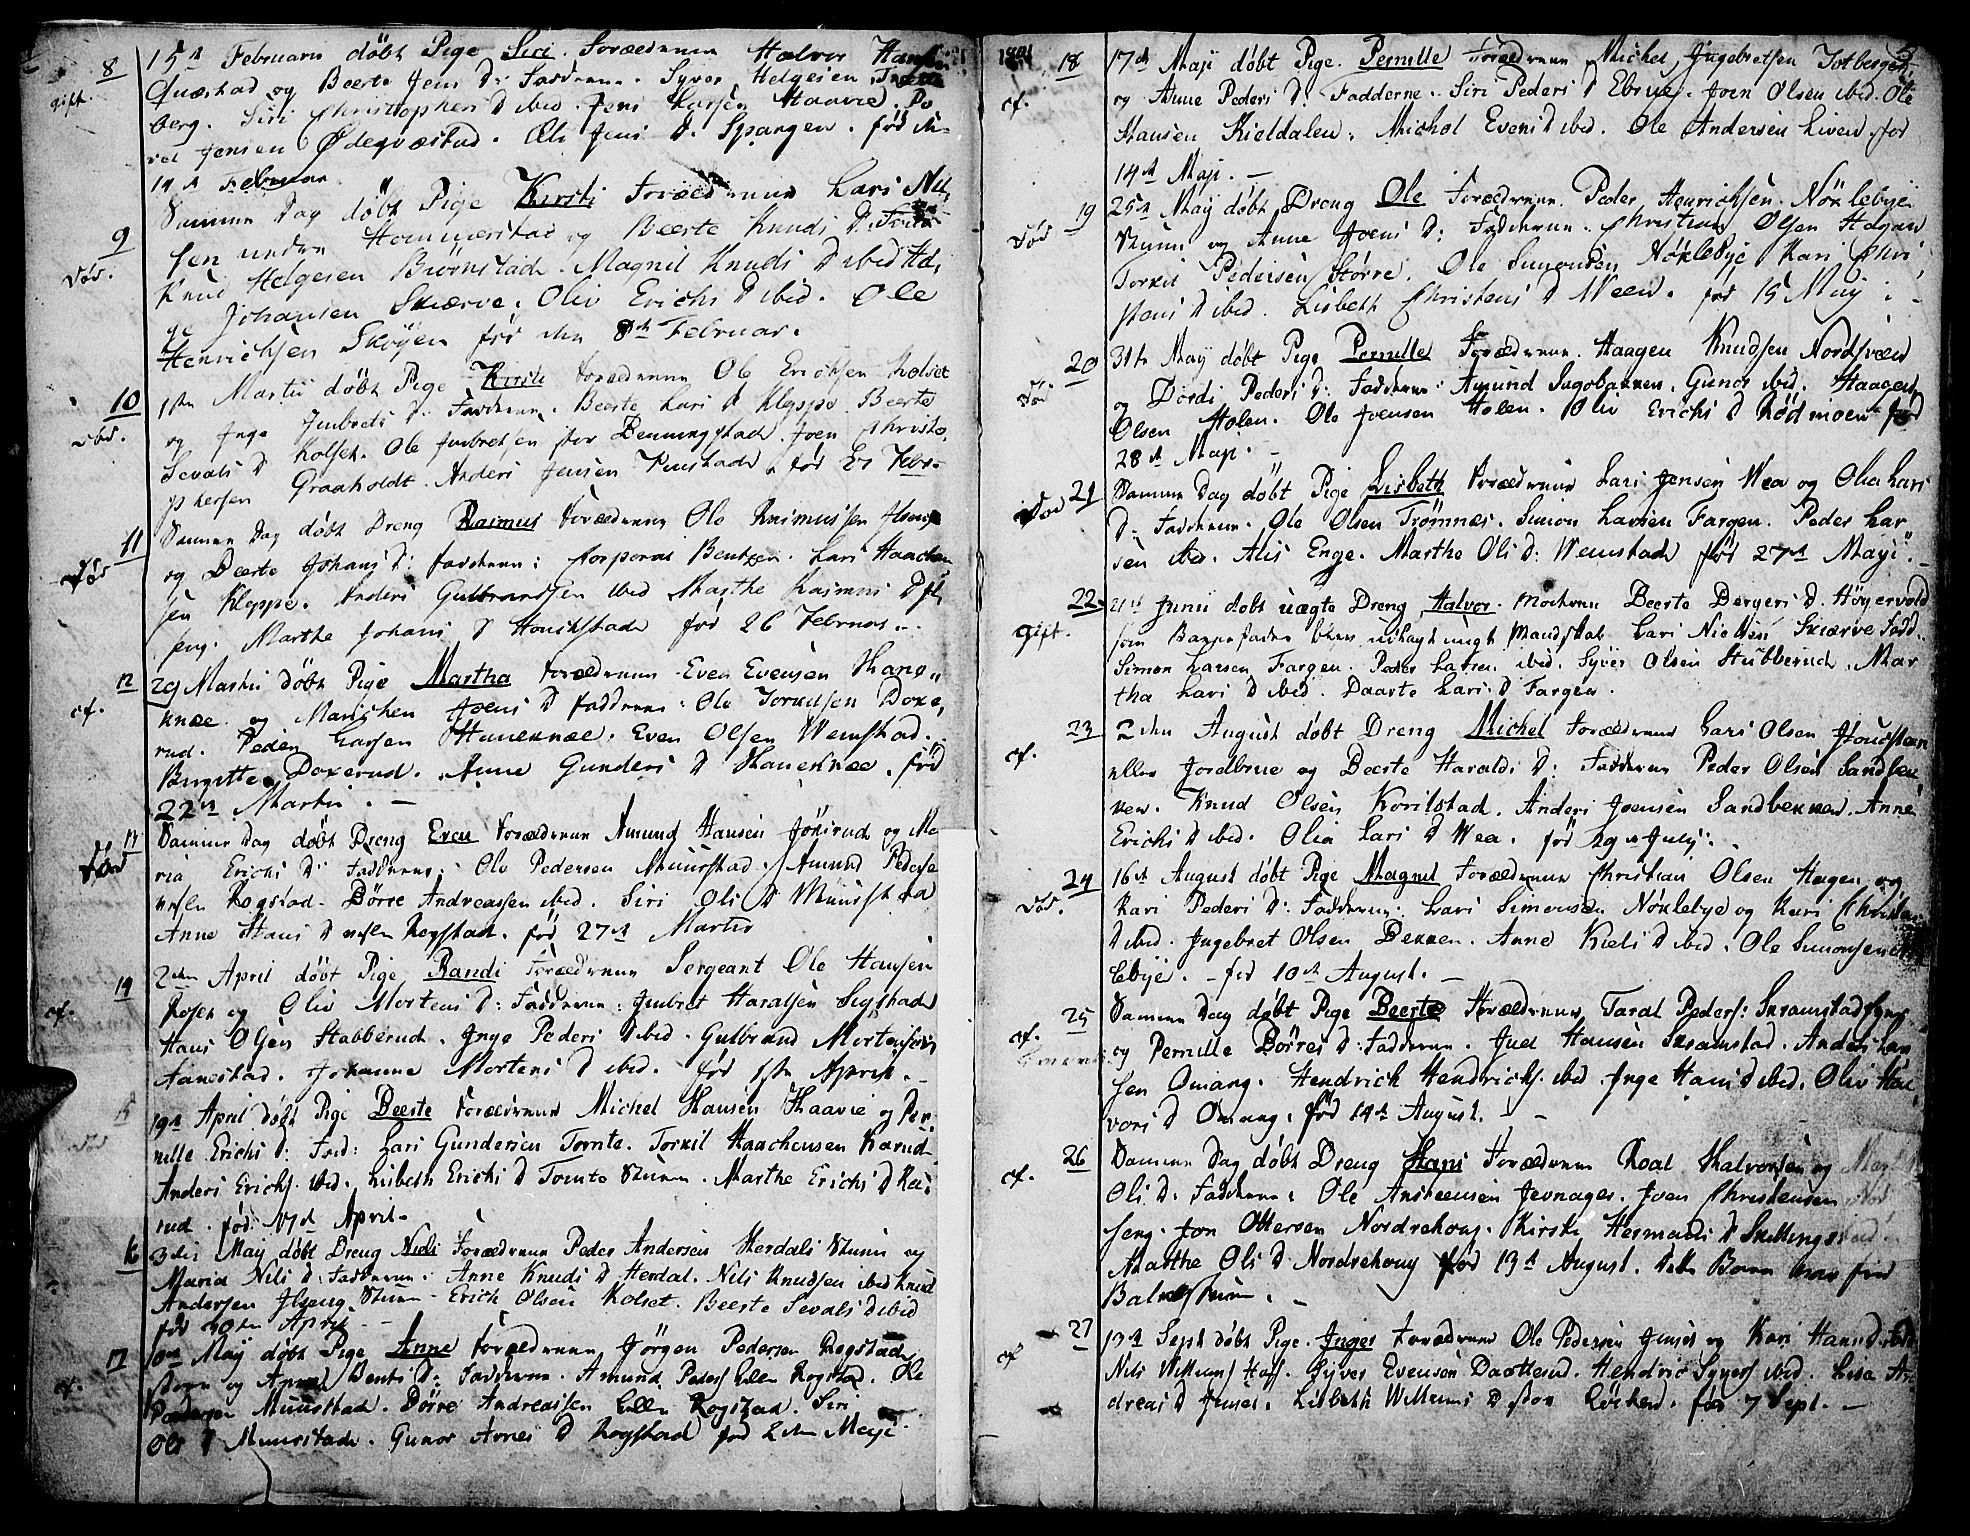 8
gift.
15de Februarii döbt Pige Siri. Foræeldrene Halvor Hansen
Quæstad og Beerte Jens D: Fadderne. Syver Helgesen
berg. Siri Christophers D ibid. Jens Larsen Haavie. Pe
Jensen Ødeqvæstad. Oli Jens D. Spangen. fød den
14de Februar
9
död.
Samme Dag döbt Pige Kirsti Forældrene Lars Nil,
sen under Hommerstad og Beerte Knuds D: Fadd
Knud Helgesen Biørnstad. Magnil Knuds D ibid Hel,
ge Johansen Skiærve. Oliv Erichs D ibid. Ole
Henrichsen Skøyen fød den 8de Februar.
10
död.
1ste Martii döbt Pige Kirsti Forældrene Ole Erichsen Kolset
og Inge Imbrets D: Fadderne. Beerte Lars D Kleppe. Beerte
Sevals D Kolset. Ole Imbretsen stor Benningstad. Joen Christo,
phersen Graaholdt. Anders Jensen Finstad. fød Febr.
11
död
Samme Dag döbt Dreng Rasmus Forældrene Ole Rasmussen Ilseng
og Beerte Johans D: Fadderne: Corporal Bentzen. Lars Haachen
sen Kleppe. Anders Gulbrandsen ibid Marthe Rasmus D Il,
seng. Marthe Johans D Honckstad fød 26 Februar.
12
cf.
29 Martii döbt Pige Martha Forældrene Even Evensen Hane,,
knæe og Marichen Joens D Fadderne: Ole Torkelsen Doxe,
rud. Peder Larsen Haneknæe. Even Olsen Wemstad.
Birgitte Doxerud. Anne Gunders D Haneknæe. fød
22de Martii. -
13
Död
Samme Dag döbt Dreng Even Forældrene Amund Hansen Jönsrud og Ma
ria Erichs D: Fadderne: Ole Pedersen Muurstad. Amund Pederse
Rogstad. Börre Andreassen ibid. Siri Ols D Muurstad
Anne Hans D Rogstad. fød 27de Martii
14
cf.
2den April döbt Pige Randi Forældrene Sergeant Ole Hansen
Rosen og Oliv Mortens D: Fadderne: Imbret Haralsen Sigstad
Hans Olsen Stabberud. Inge Peders D ibid. Gulbrand Mortensen
Aanestad. Johanne Mortens D ibid. fød 1ste April.
15
död
19de April döbt Pige Beerte Forældrene Michel Hansen Haavie og Per,
nille Erichs D: Fad: Lars Gundersen Tomte. Torkil Haachensen Karud
Anders Erichs. ibid. Lisbeth Erichs D Tomte Marthe Erichs D Ka,
rud. fød 17de April.
16
3die May döbt Dreng Niels Forældrene Peder Andersen Herdals og
Maria Nils D: Fadderne: Anne Knuds D Herdal. Nils Knudsen ibid Knud
Andersen Ilseng Erich Olsen Kolset. Beerte Sevals D ibid
fød 30te April
17
cf.
10de May döbt Pige Anne Forældrene Jörgen Pedersen Rogstad
og Anne Bents D: Fadderne. Amund Peders Lille Rogstad. Ole
Pedersen Muurstad. Börre Andreassen Lille Rogstad. Siri
Ols D Muurstad. Gunor Arnes D Rogstad fød 2den Maji
1801
3
18
cf.
17de Maji döbt Pige. Pernille Forældrene Michel Ingebretsen Totberget,
og Anne Peders D: Fadderne. Siri Peders D Ebrue. Joen Olsen ibid. Ole
Hansen Kieldalen. Michel Evens D ibid. Ole Andersen Liven. fød
14de Maji. -
19
Död
25de May döbt Dreng Ole Forældrene. Peder Henrichsen Nöxlebye
og Anne Joens D: Fadderne. Christian Olsen Hagen
Torkil Pedersen Större. Ole Simonsen Nöxlebye Kari Chri,
stens D ibid. Lisbeth Christens D Ween. fød 15 May.
20
död
31te May döbt Pige Pernille Forældrene. Haagen Knudsen Nordsveen
og Dordi Peders D: Fadderne: Amund Sugobakken. Gunor ibid. Haagen
Olsen Holen. Ole Joensen Holen. Oliv Erichs D Rödmoen fød
28de Maji. -
21
Död
Samme Dag döbt Pige Lisbeth Forældrene Lars Jensen Wea og Olia Lars
D: Fadderne. Ole Olsen Trömnes. Simon Larsen Fargen. Peder Lar
sen ibid. Alis Enge. Marthe Ols D: Wemstad fød 27de Maji.
22.
gift.
21de Junii döbt uægte Dreng Halvor. Moderen Beerte Bergers D. Höyervold
som Barnefader blev udlagt ungt Mandskab Lars Nielsen Skiærve Fadd.
Simon Larsen Fargen. Peder Larsen ibid. Syver Olsen Stubberud. Mar
tha Lars D ibid. Daarte Lars D Fargen.
23
cf.
2den August döbt Dreng Michel Forældrene Lars Olsen
eller Jordbrue og Beerte Haralds D: Fadderne Peder Olsen Sandbek
ken. Knud Olsen Korilstad. Anders Joensen Sandbekken. Anne
Erichs D ibid. Olia Lars D Wea. fød 29de July.
24
död.
16de August döbt Pige Magnil Forældrene Christian Olsen Hagen og
Kari Peders D: Fadderne. Lars Simonsen Nöxlebye og Kari Christen
D ibid. Ingebret Olsen Bekken. Anne Kiels D ibid. Ole Simonsen
lebye. - fød 10de August. -
25
cf.
Samme Dag döbt Pige Beerte Forældrene Taral Peders: Skramstad
og Pernille Börres D: Fadderne. Juel Hansen Skramstad. Anders Han
sen Omang. Hendrich Hendrichs. ibid. Inge Hans D ibid. Oliv Hal,
vors D Omang. fød 14de August. -
26
cf.
Samme Dag döbt Dreng Hans Forældrene Roal Halvorsen og
Ols D: Fadderne: Ole Ansteensen Jevnager. Joen Christensen
seng. Jon Ottersen Nordrehoug. Kirsti Hermands D Skillingstad.
Marthe Ols D Nordrehoug fød 13de August. Dette Barn
27
cf
13de Sept döbt Pige. Inger Forældrene Ole Pedersen Juuset og Kari Hans D ibid
Nils Willums Hof. Syver Evensen Dasterud. Hendric Syvers ibid. Lisa An
dreas D Juuset. Lisbeth Willums D stor fød 7 Sept. -